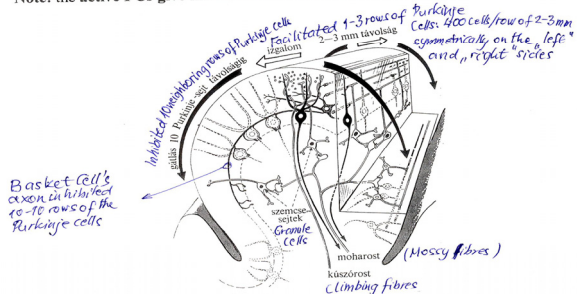 Facilitated 1-3 rows of Purkinje
Cells: 400 cells/row of 2-3mm
symmetrically on the „left"
and „right" sides
izgalom
2–3 mm távolság
Inhibited 10 neighbering rows of Purkinje cells
gátlás 10 Purkinje-sejt távolságig
Basket Cell's
axon inhibited
10-10 rows of the
Purkinje cells
szemcse-
sejtek
Granule
Cells
moharost
(Mossy fibres)
kúszórost
Climbing fibres